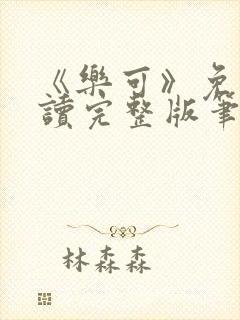 《樂可》免
讀完整版筆
林森森